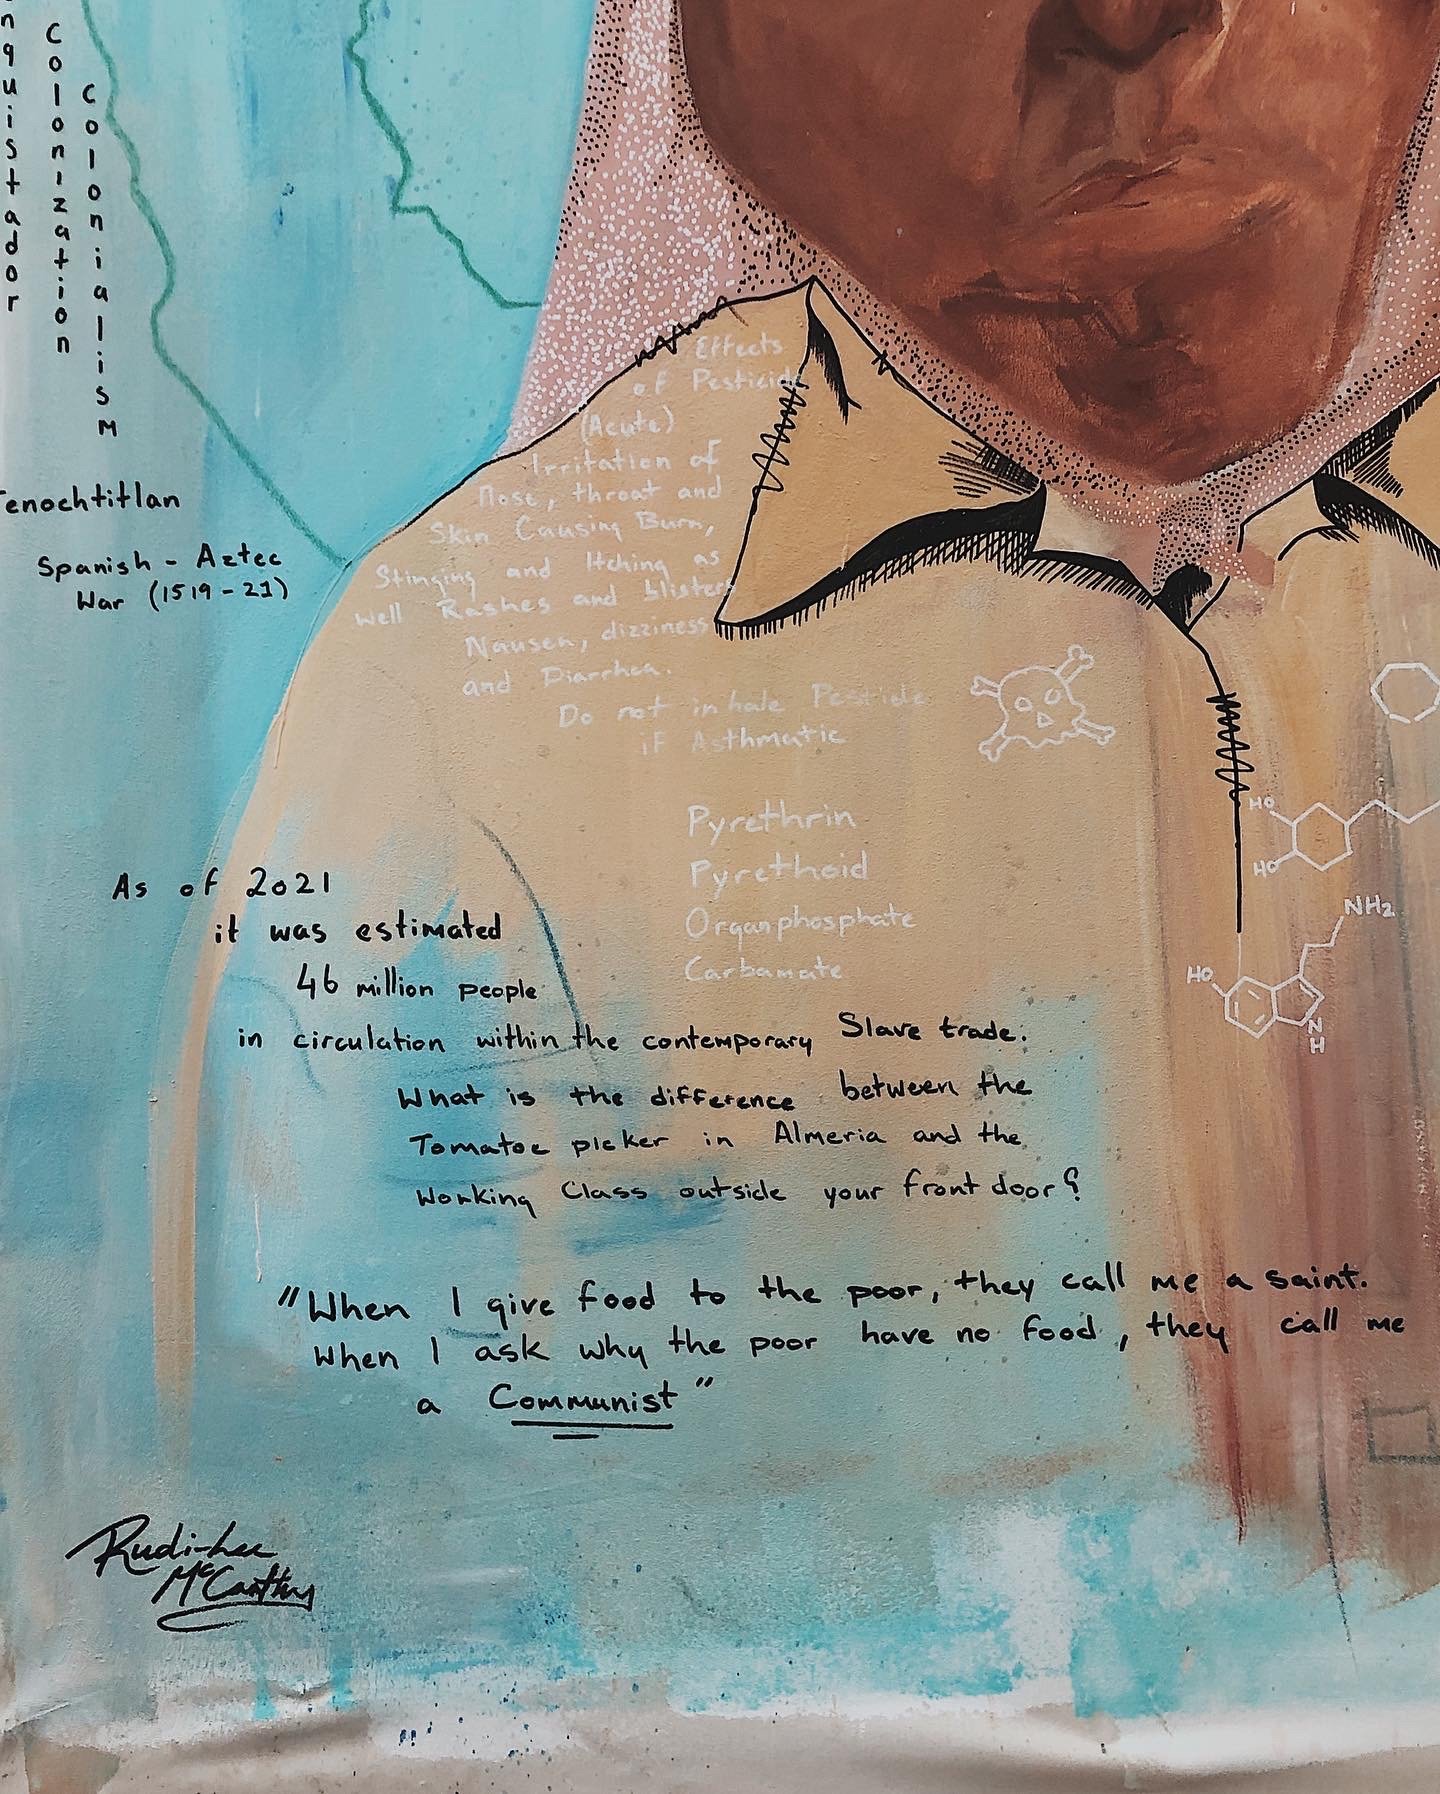 nquistador
Colonization
Colonialism
enochtitlan
Spanish - Aztec
War (1519-21)
Effects
of Pesticide
(Acute)
Irritation of
Nose, throat and
Skin Causing Burn,
Stinging and Itching as
well Rashes and blisters
Nausea, dizziness
and Diarrhea.
Do not inhale Pesticide
if Asthmatic
Pyrethrin
Pyrethoid
Organphosphate
Carbamate
HO
HO
NH2
HO
N
H
As of 2021
it was estimated
46 million people
in circulation within the contemporary Slave trade.
What is the difference between the
Tomatoe picker in Almeria and the
Working Class outside your front door?
"When I give food to the poor, they call me a saint.
When I ask why the poor have no food, they call me
a Communist"
Rudi-Lee
McCarthy